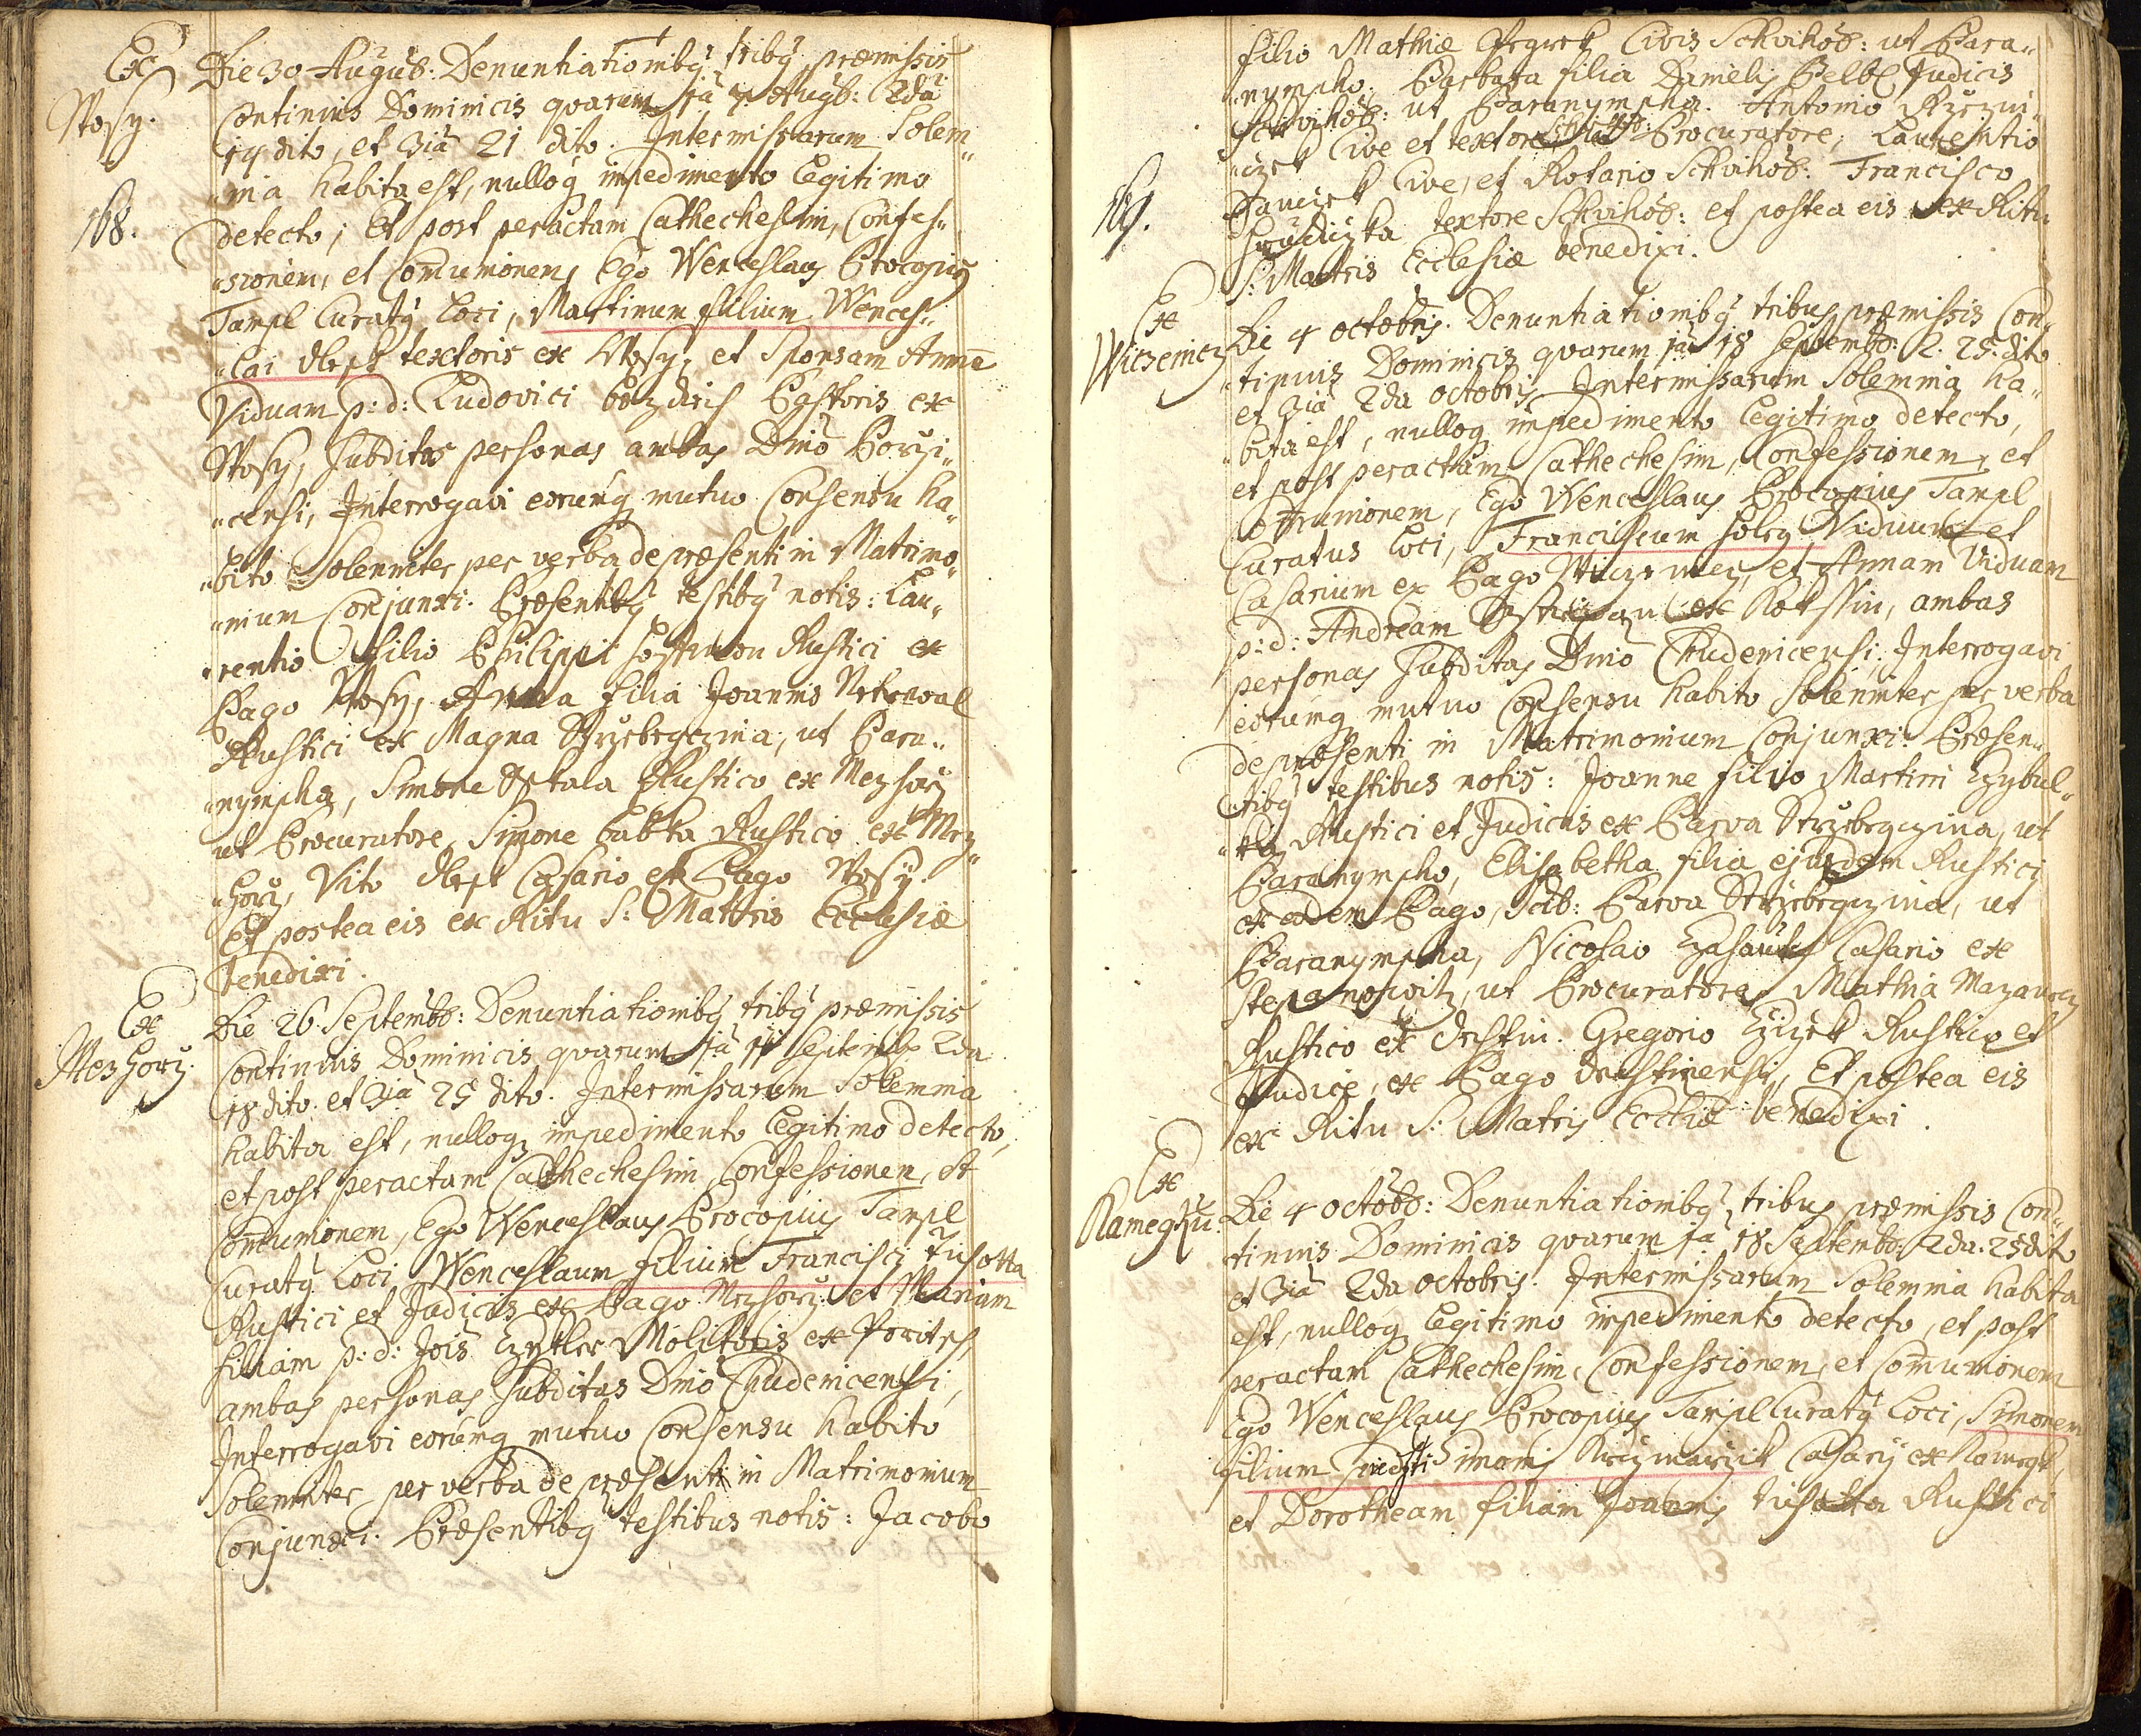 Ex
Wosy.
168.
Die 30 Augusti: Denuntiationibq tribq præmissis
Continuis Dominicis quarum 1a 7 Augb: 2da
14 dito, et 3ia 21 dito. Intermissarum Solem„
„nia habita est, nulloq impedimento Legitimo
detecto; Et post peractam Cathechesim, Confes„
„sionem, et Com̄unionem, Ego Wenceslaus Procopius
Tampl Curatq Loci, Martinum filium Wences„
„lai textoris ex Wosy, et Sponsam Annam
Viduam p: d: Ludovici Pastoris ex
Wosy, Subditas personas ambas Dnīo Porzi„
„censi, Interrogavi eorumq mutuo Consensu ha„
„bito Solenniter per verba de præsenti in Matrimo„
„nium Conjunxi. Præsentibq testibq notis: Lau„
„rentio filio Philippi Rustici ex
Pago Wosy, Anna filia Joannis
Rustici ex Magna ut Para„
„nympha, Simone Skala Rustico ex Mezhorz
ut Procuratore, Simone Babka Rustico ex Mez„
„horz, Vito Casario ex Pago Wosy.
Et postea eis ex Ritu S: Matris Ecclesiæ
benedixi.
Ex
Mezhorz.
Die 26 Septembb: Denuntiationibq tribq præmissis
Continuis Dominicis quarum 1a 11 Septemb 2da
18 dito et 3ia 25 dito. Intermissarum Solemnia
habita est, nulloq impedimento Legitimo detecto,
et post peractam Cathechesim, Confessionem, et
Com̄unionem, Ego Wenceslaus Procopius Tampl
Curatq Loci, Wenceslaum filium Francisci Tusotta
Rustici et Judicis ex Pago Mezhorz: et Mariam
filiam p: d: Jois Molitoris ex Poritsch,
ambas personas Subditas Dnīo Chudenicensi,
Interrogavi eorumq mutuo Consensu habito
Solenniter per verba de præsenti in Matrimonium
Conjunxi. Præsentibq testibus notis: Jacobo
filio Mathiæ Civis Schvihob: ut Para„
„nympho, Barbara filia Danielis Pelbl Judicis
Schvihob: ut Paranympha. Antonio
Cive et textore Schvihob: ut Procuratore, Laurentio
Cive, et Rotario Schvihob: Francisco
textore Schvihob: et postea eis ex Ritu
S: Matris Ecclesiæ benedixi.
169.
Ex
Wiczenicz
Die 4 octobris. Denuntiationibq tribus præmissis Con„
„tinuis Dominicis quarum 1a 18 Septembb: 2. 25. dito
et 3ia 2da octobris, Intermissarum Solemnia ha„
„bita est, nulloq impedimento Legitimo detecto,
et post peractam Cathechesim, Confessionem, et
Com̄unionem, Ego Wenceslaus Procopius Tampl
Curatus Loci, Franciscum Holy, Viduum et
Casarium ex Pago Wiczenicz, et Annam Viduam
p: d: Andream ex Kokssin, ambas
personas Subditas Dnīo Chudenicensi, Interrogavi
eorumq mutuo Consensu habito Solenniter per verba
de præsenti in Matrimonium Conjunxi. Præsen„
„tibq testibus notis: Joanne filio Martini Czybul„
„ka Rustici et Judicis ex Parva ut
Paranympho, Elisabetha filia ejusdem Rustici
ex eodem Pago, scib: Parva ut
Paranympha, Nicolao Casario ex
Stepanowitz, ut Procuratore, Mathia Mazaurz
Rustico ex Drstin. Gregorio Rustico et
Judice, ex Pago Drastinensi, Et postea eis
ex Ritu S: Matris Ecclīæ benedixi.
Ex
Kamegku.
Die 4 octobb: Denuntiationibq, tribus præmissis Con„
tinuis Dominicis quarum 1a 18 Septembb: 2da. 25 dito
et 3ia 2da octobris. Intermissarum Solemnia habita
est, nulloq Legitimo impedimento detecto, et post
peractam Cathechesim, Confessionem, et Com̄unionem
Ego Wenceslaus Procopius Tampl Curatq Loci, Simonem
filium Simonis Casarij ex Kamegk,
et Dorotheam filiam Joannis Tusotta Rustici